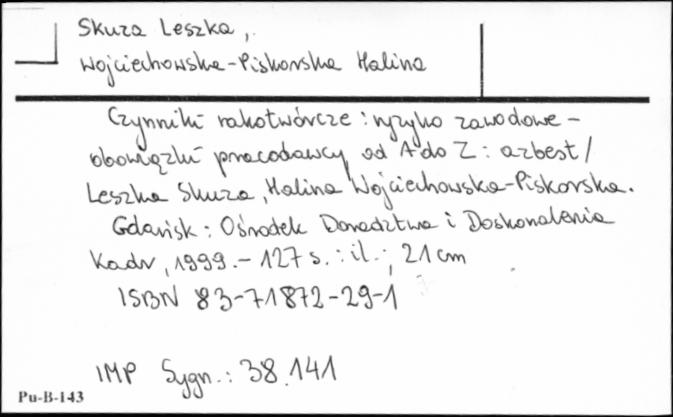 Skuza Leszka,
Wojciechowska-Piskorska Halina
Czynniki rakotwórcze : ryzyko zawodowe -
obowiązki pracodawcy od A do Z : azbest /
Leszka Skuza, Halina Wojciechowska-Piskorska.
Gdańsk : Ośrodek Doradztwa i Doskonalenia
Kadr, 1999. - 127 s. : il. ; 21 cm
ISBN 83-71872-29-1
IMP Sygn.: 38.141
Pu-B-143